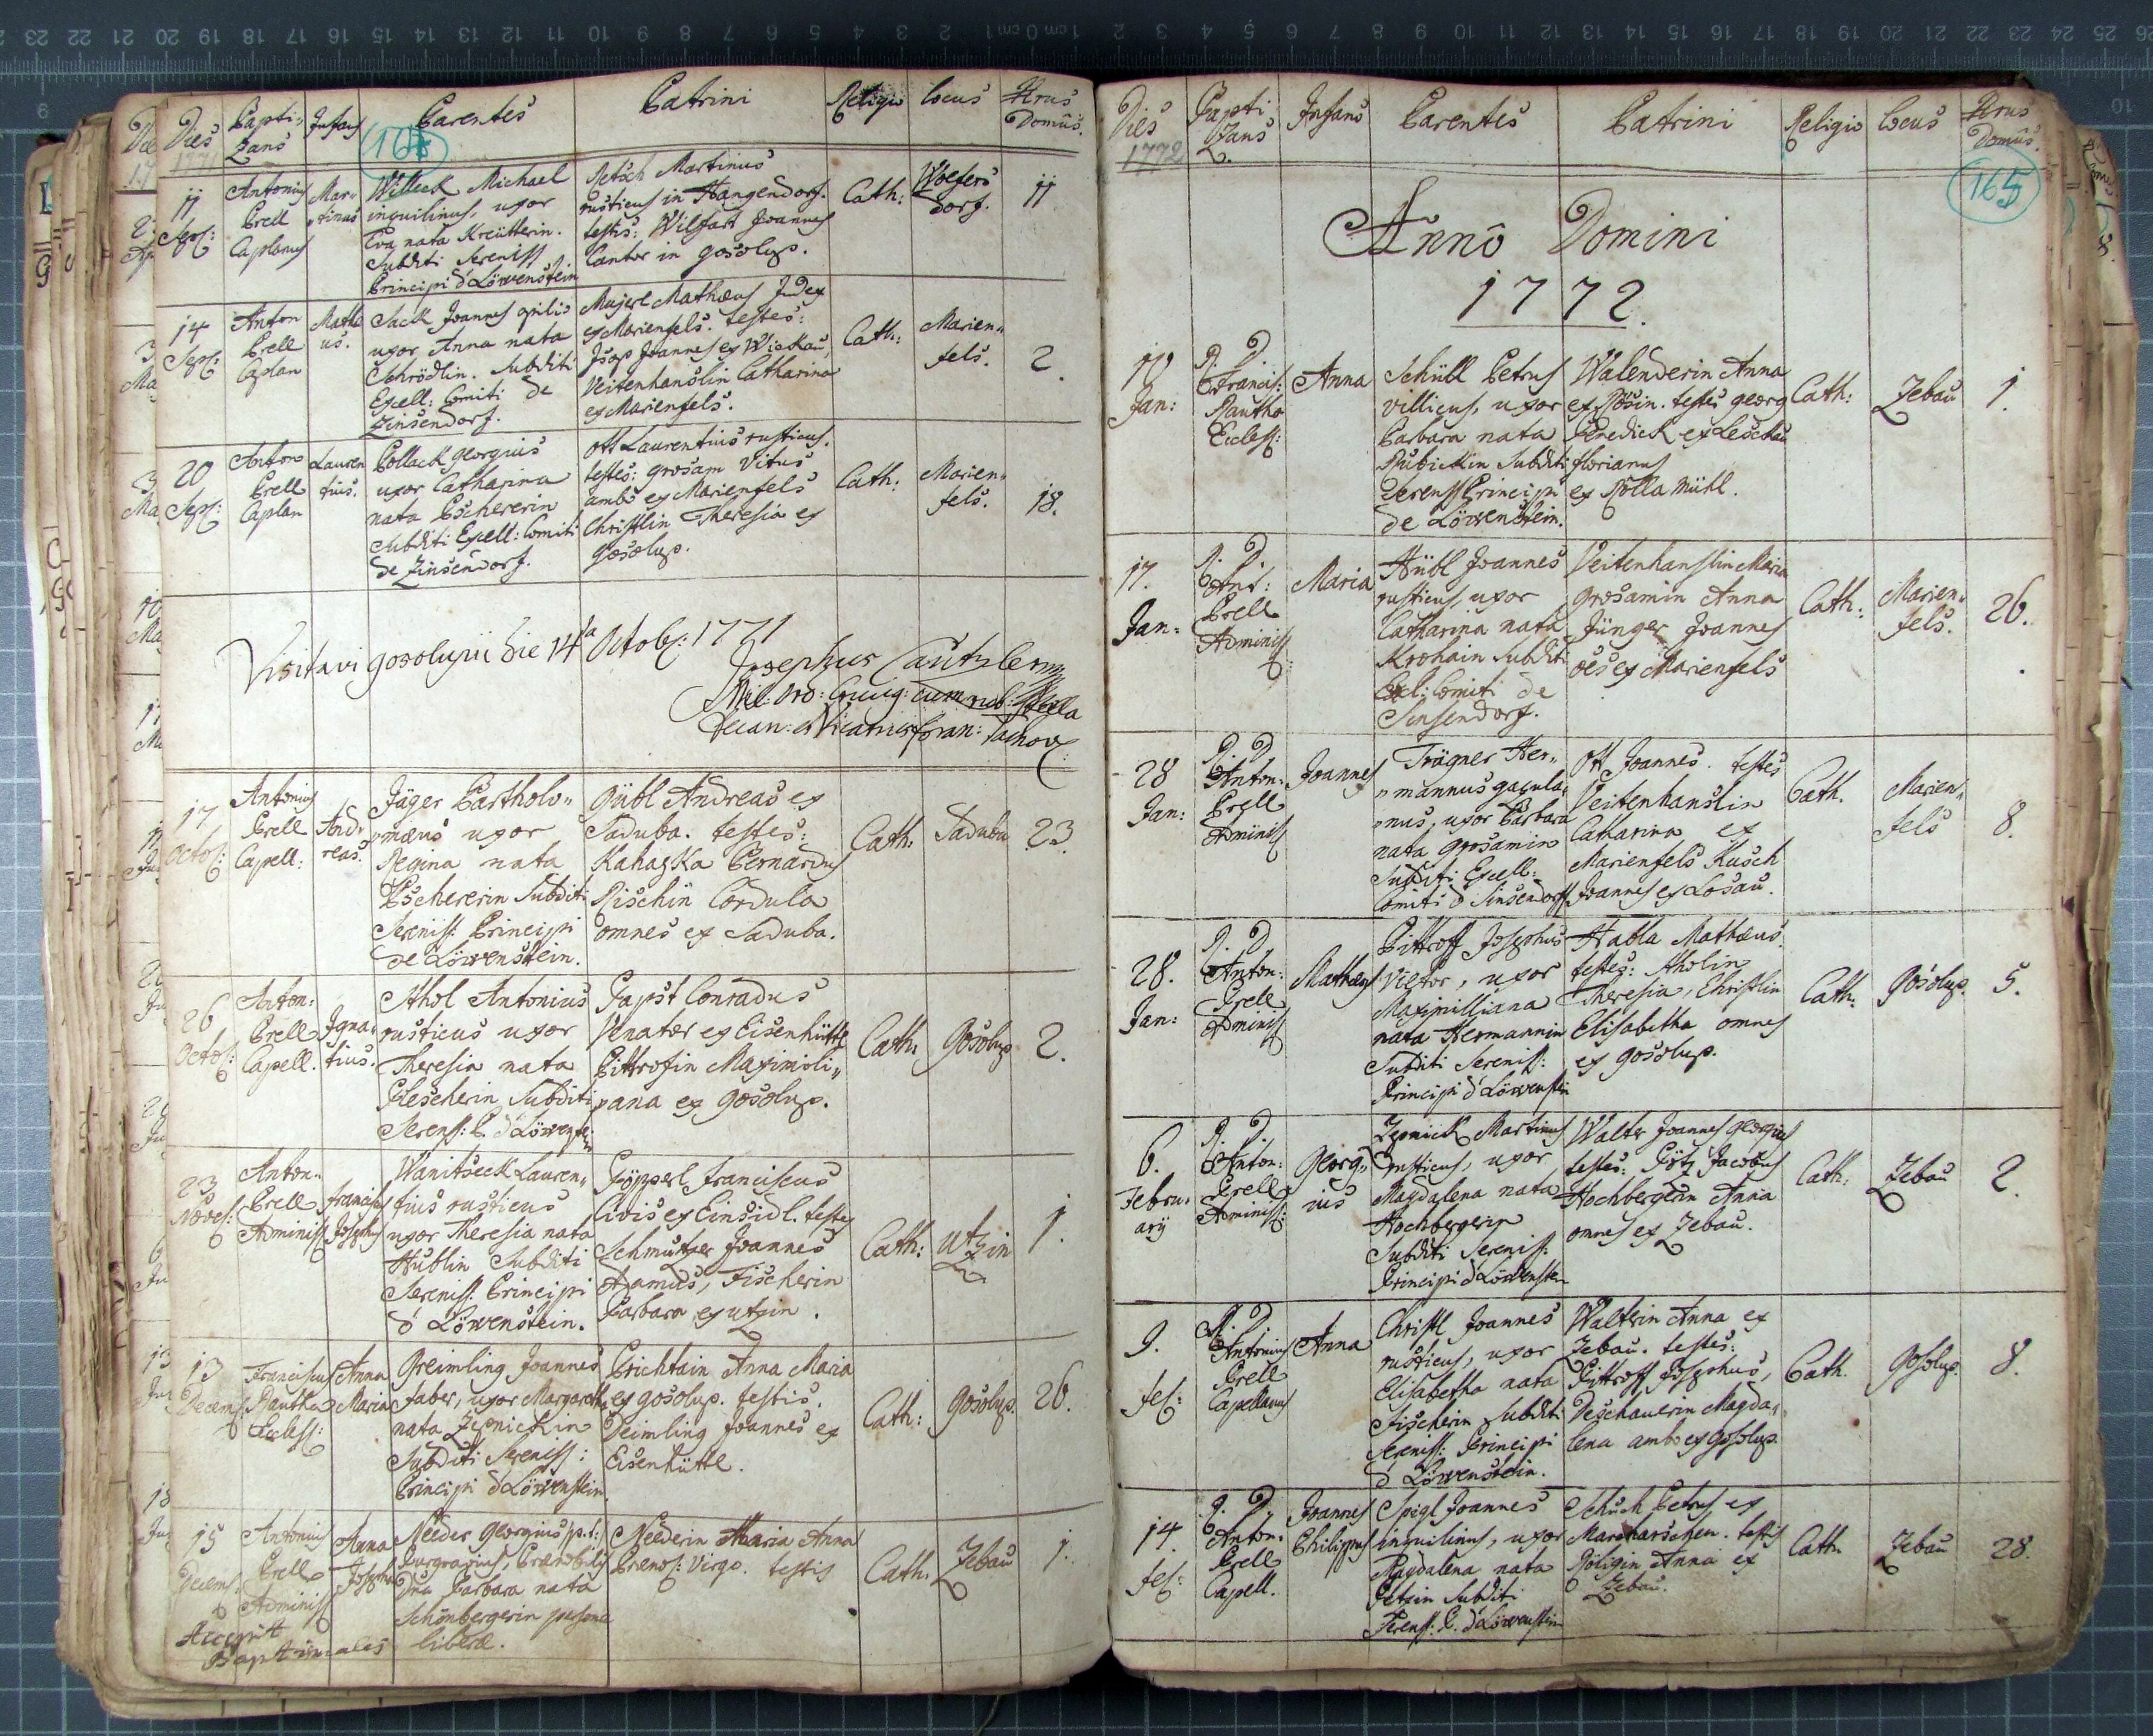 Dies 1771
Bapti-
zans
Infans
Parentes
Patrini
Religio
Locus
Nrus
Domûs.
164
11
Sept:
Antonius
Prell
Caplanus
Mar-
tinus
Willeck Michael
inquilinus, uxor
Eva nata Kreütterin.
Subditi Sereniss
Principi d'Löwenstein
Retsch Martinus
rusticus in Hangendorf.
testis: Wilfart Joannes
Cantor in gosolup.
Cath:
Wolfers
dorf.
11
14
Sept:
Anton
Prell
Caplan
Mathæ
us.
Sack Joannes opilio
uxor Anna nata
Schrödlin. Subditi
Excell: Comiti de
Zinsendorf.
Majerl Mathæus Judex
ex Marienfels. testes:
Joannes ex Wickau,
Veitenhanslin Catharina
ex Marienfels.
Cath:
Marien-
fels.
2.
20
Sept:
Anton
Prell
Caplan
Lauren
tius.
Pollack georgius
uxor Catharina
nata Pschererin
Subditi Excell: Comiti
de Zinsendorf.
Ott Laurentius rusticus.
testes: grosam Vitus
ambo ex Marienfels
Christlin Theresia ex
gosolup.
Cath:
Marien-
fels.
18.
Visitavi gosolupii die 14ta Octob: 1771
Josephus
Mil: Ord: Cruc: cum rub: Stella
Decan: et Vicarius foran: Tachov
17
Octob:
Antonius
Prell
Capell:
And-
reas.
Jäger Bartholo-
mæus uxor
Regina nata
Pschererin Subditi
Sereniss: Principi
de Löwenstein.
gübl Andreas ex
Saduba. testes:
Kahazka Bernardus
Rischin Cordula
omnes ex Saduba.
Cath:
Saduba
23.
26
Octob:
Anton:
Prell
Capell.
Igna-
tius.
Ahol Antonius
rusticus uxor
Theresia nata
Plescherin Subditi
Sereniss: P. d'Löwenstein
Papst Conradus
Venator ex Eisenhüttl
Pittrofin Maximili-
ana ex gosolup.
Cath:
gosolup
2.
23
Novemb:
Anton:
Prell
Administ
Franciscus
Josephus
Wanitseck Lauren-
tius rusticus
uxor Theresia nata
Hüblin Subditi
Sereniss. Principi
d' Löwenstein.
Pöpperl Franciscus
Civis ex Einsidl. testes
Schmutzer Joannes
Adamus, Fischerin
Barbara ex utzin.
Cath:
utzin
1.
13
Decemb:
Franciscus
Pautha
Eccless:
Anna
Maria
greimling Joannes
faber, uxor Margaretha
nata Zepnickin
Subditi Sereniss:
Principi d'Löwenstein
Prichtain Anna Maria
ex gosolup. testis.
Deimling Joannes ex
Eisenhüttl.
Cath:
gosolup.
26.
15
Decemb
Antonius
Prell
Administ
Anna
Josepha
Needer georgius p.t:
Purgravius, Prænobilis
Dna Barbara nata
Schönbergerin personæ
liberæ.
Needrin Maria Anna
Prænob: Virgo. testis
Cath:
Zebau
1.
Accepit
Baptismales
Dies
1772
Bapti
zans
Infans
Parentes
Patrini
Religio
Locus
Nrus
Domûs.
165
Annô Domini
1772.
10
Jan:
P. D
Francis:
Pautha
Eccless:
Anna
Schüll Petrus
villicus, uxor
Barbara nata
Rubickin Subditi
Sereniss Principi
de Löwenstein.
Walenderin Anna
ex Pösin. testes georg
Penedick ex Leskau
florianus
ex Polla Mühl.
Cath:
Zebau
1.
17.
Jan:
P. D.
Ant:
Prell
Administ
Maria
Hübl Joannes
rusticus uxor
Catharina nata
Krohain Subditi
Excl: Comiti de
Sinsendorf.
Veitenhanslin Maria
grosamin Anna
Jünger Joannes
oēs ex Marienfels
Cath:
Marien-
fels.
26.
28
Jan:
P. D
Anton:
Prell
Administ
Joannes
Trägner Her-
mannus
uxor Barbara
nata grosamin
Subditi Excell:
Comiti d' Sinsendorff
Ott Joannes. testes
Veitenhanslin
Catharina ex
Marienfels Kusch
Joannes ex Losau.
Cath.
Marien-
fels
8.
28.
Jan:
P. D
Anton:
Prell
Administ
Mathæus
Pittroff Josephus
Viëtor, uxor
Maximilliana
nata Hermannin
Subditi Sereniss:
Principi d'Löwenstein
Habla Mathæus.
testes: Aholin
Theresia, Christlin
Elisabetha omnes
ex gosolup.
Cath:
gosolup.
5.
6.
Febru-
arij
P. D.
Anton:
Prell
Administ:
georg-
ius
Zepnick Martinus
rusticus, uxor
Magdalena nata
Hochbergerin
Subditi Sereniss:
Principi d'Löwenstein
Walter Joannes georgius
testes: Götz Jacobus
Hochbergerin Anna
omnes ex Zebau.
Cath:
Zebau
2.
9.
feb:
P. D
Antonius
Prell
Capellanus
Anna
Christl Joannes
rusticus, uxor
Elisabetha nata
Fischerin Subditi
Sereniss: Principi
d' Löwenstein.
Walterin Anna ex
Zebau. testes:
Pittroff Josephus,
Deschauerin Magda-
lena ambo ex gosolup.
Cath.
gosolup.
8.
14.
feb:
P. D.
Anton:
Prell
Capell.
Joannes
Philippus
Spigl Joannes
inquilinus, uxor
Magdalena nata
Petzin Subditi
Sereniss: P. d'Löwenstein
Schuch Petrus ex
Marcharschen. testis
Poligin Anna ex
Zebau.
Cath:
Zebau
28.